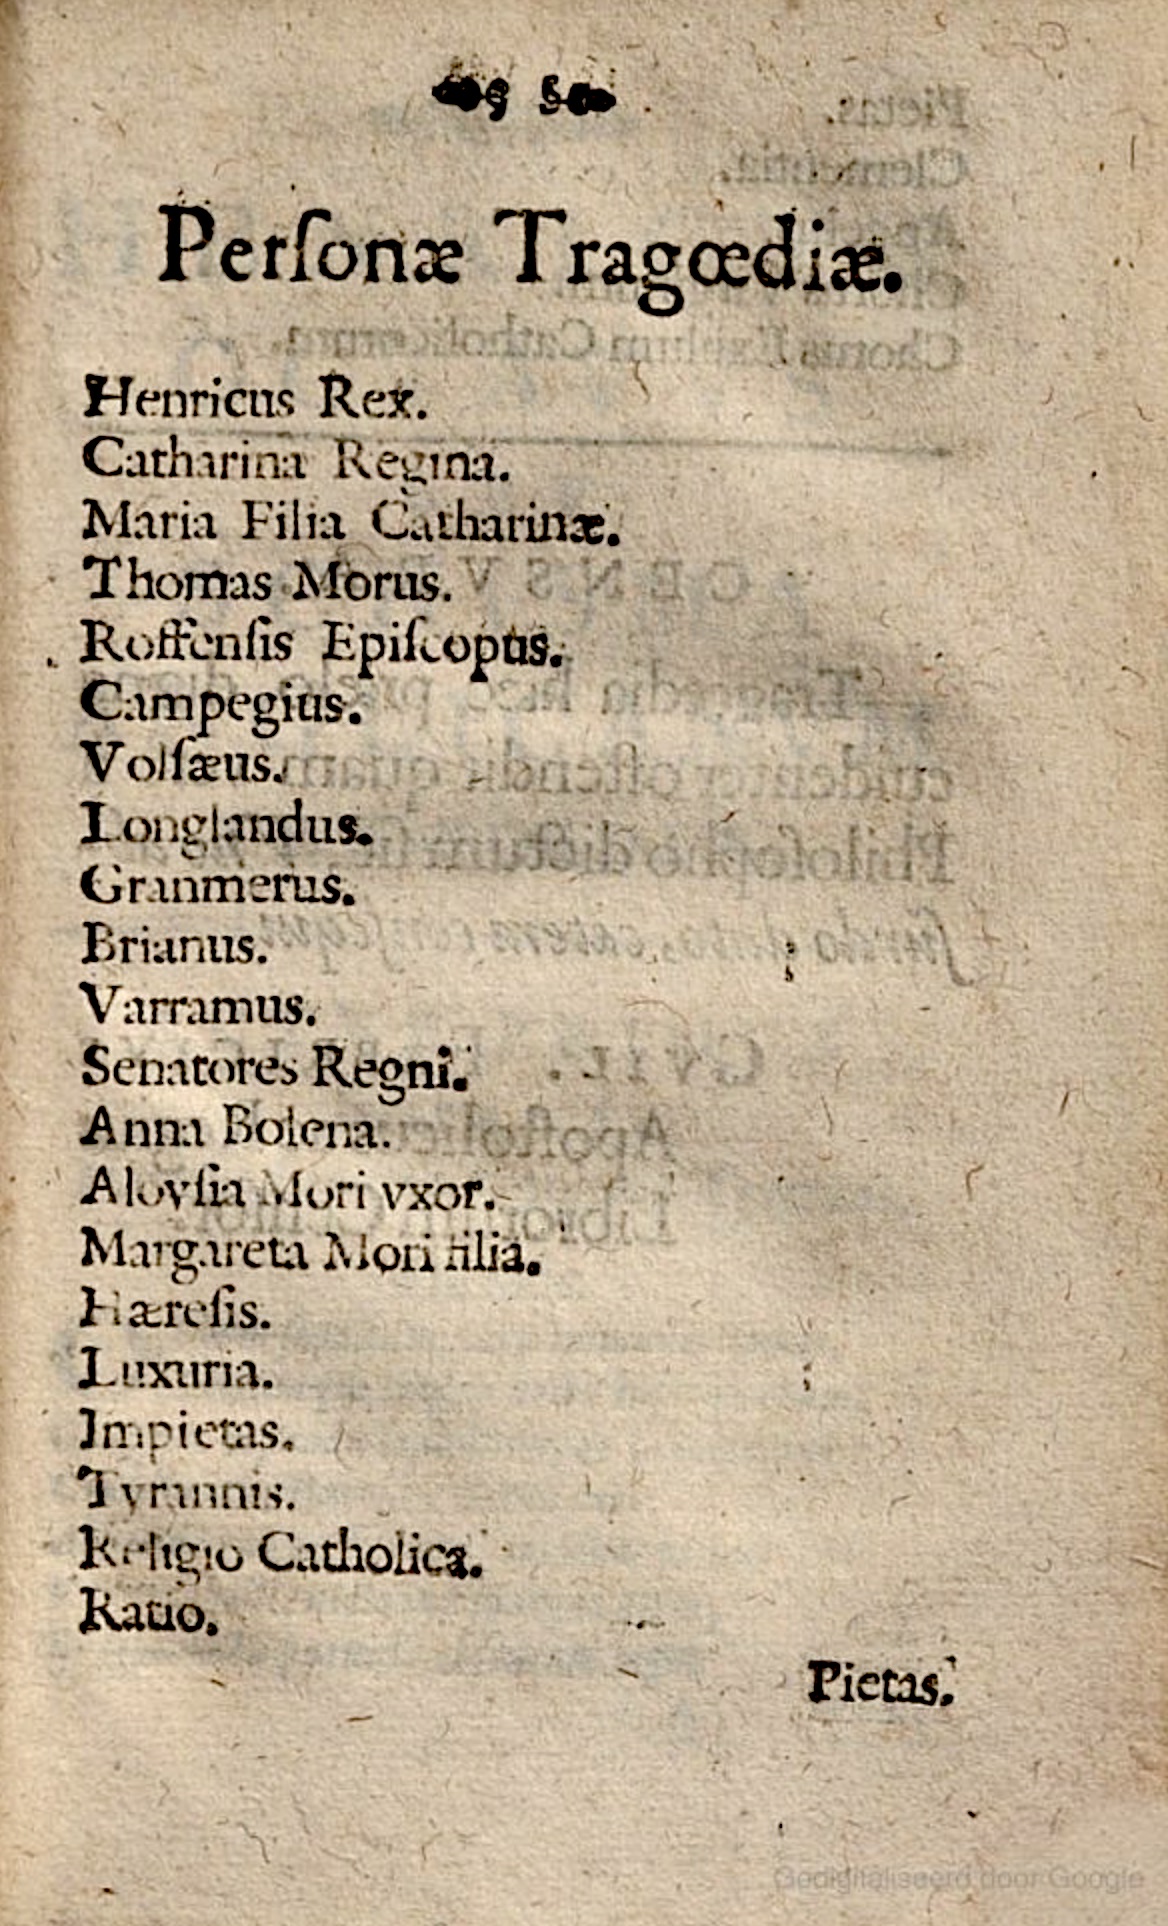 Perſonæ Tragœdiæ.
Henricus Rex.
Catharina Regina.
Maria Filia Catharinæ.
Thomas Morus.
Roffenſis Epiſcopus.
Campegius.
Volſæus.
Longlandus.
Granmerus.
Brianus.
Varramus.
Senatores Regni.
Anna Bolena.
Aloyſia Mori vxor.
Margareta Mori filia.
Hæreſis.
Luxuria.
Impietas.
Tyrannis.
Religio Catholica.
Ratio.
Pietas.
Gedigitaliseerd door Google